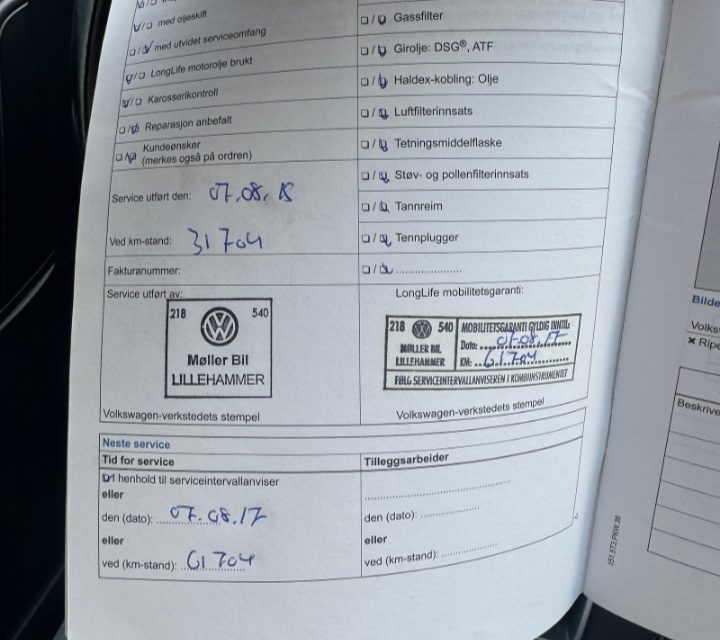 ☑/☐ med oljeskift
☐/☑ med utvidet serviceomfang
☑/☐ LongLife motorolje brukt
☑/☐ Karosserikontroll
☐/☑ Reparasjon anbefalt
☐/☑ Kundeønsker
(merkes også på ordren)
Service utført den: 07.08.15
Ved km-stand: 31704
Fakturanummer:
Service utført av:
218 540
Møller Bil
LILLEHAMMER
Volkswagen-verkstedets stempel
☐/☑ Gassfilter
☐/☑ Girolje: DSG®, ATF
☐/☑ Haldex-kobling: Olje
☐/☑ Luftfilterinnsats
☐/☑ Tetningsmiddelflaske
☐/☑ Støv- og pollenfilterinnsats
☐/☑ Tannreim
☐/☑ Tennplugger
☐/☑ ....................
LongLife mobilitetsgaranti:
218 540
MØLLER BIL
LILLEHAMMER
MOBILITETSGARANTI GYLDIG INNTIL:
Dato: 07.08.17
KM: 61704
FØLG SERVICEINTERVALLANVISEREN I KOMBIINSTRUMENTET
Volkswagen-verkstedets stempel
Neste service
Tid for service
☑ I henhold til serviceintervallanviser
eller
den (dato): 07.08.17
eller
ved (km-stand): 61704
Tilleggsarbeider
den (dato): ....................
eller
ved (km-stand): ....................
Bilde
Volks
× Ripe
Beskrive